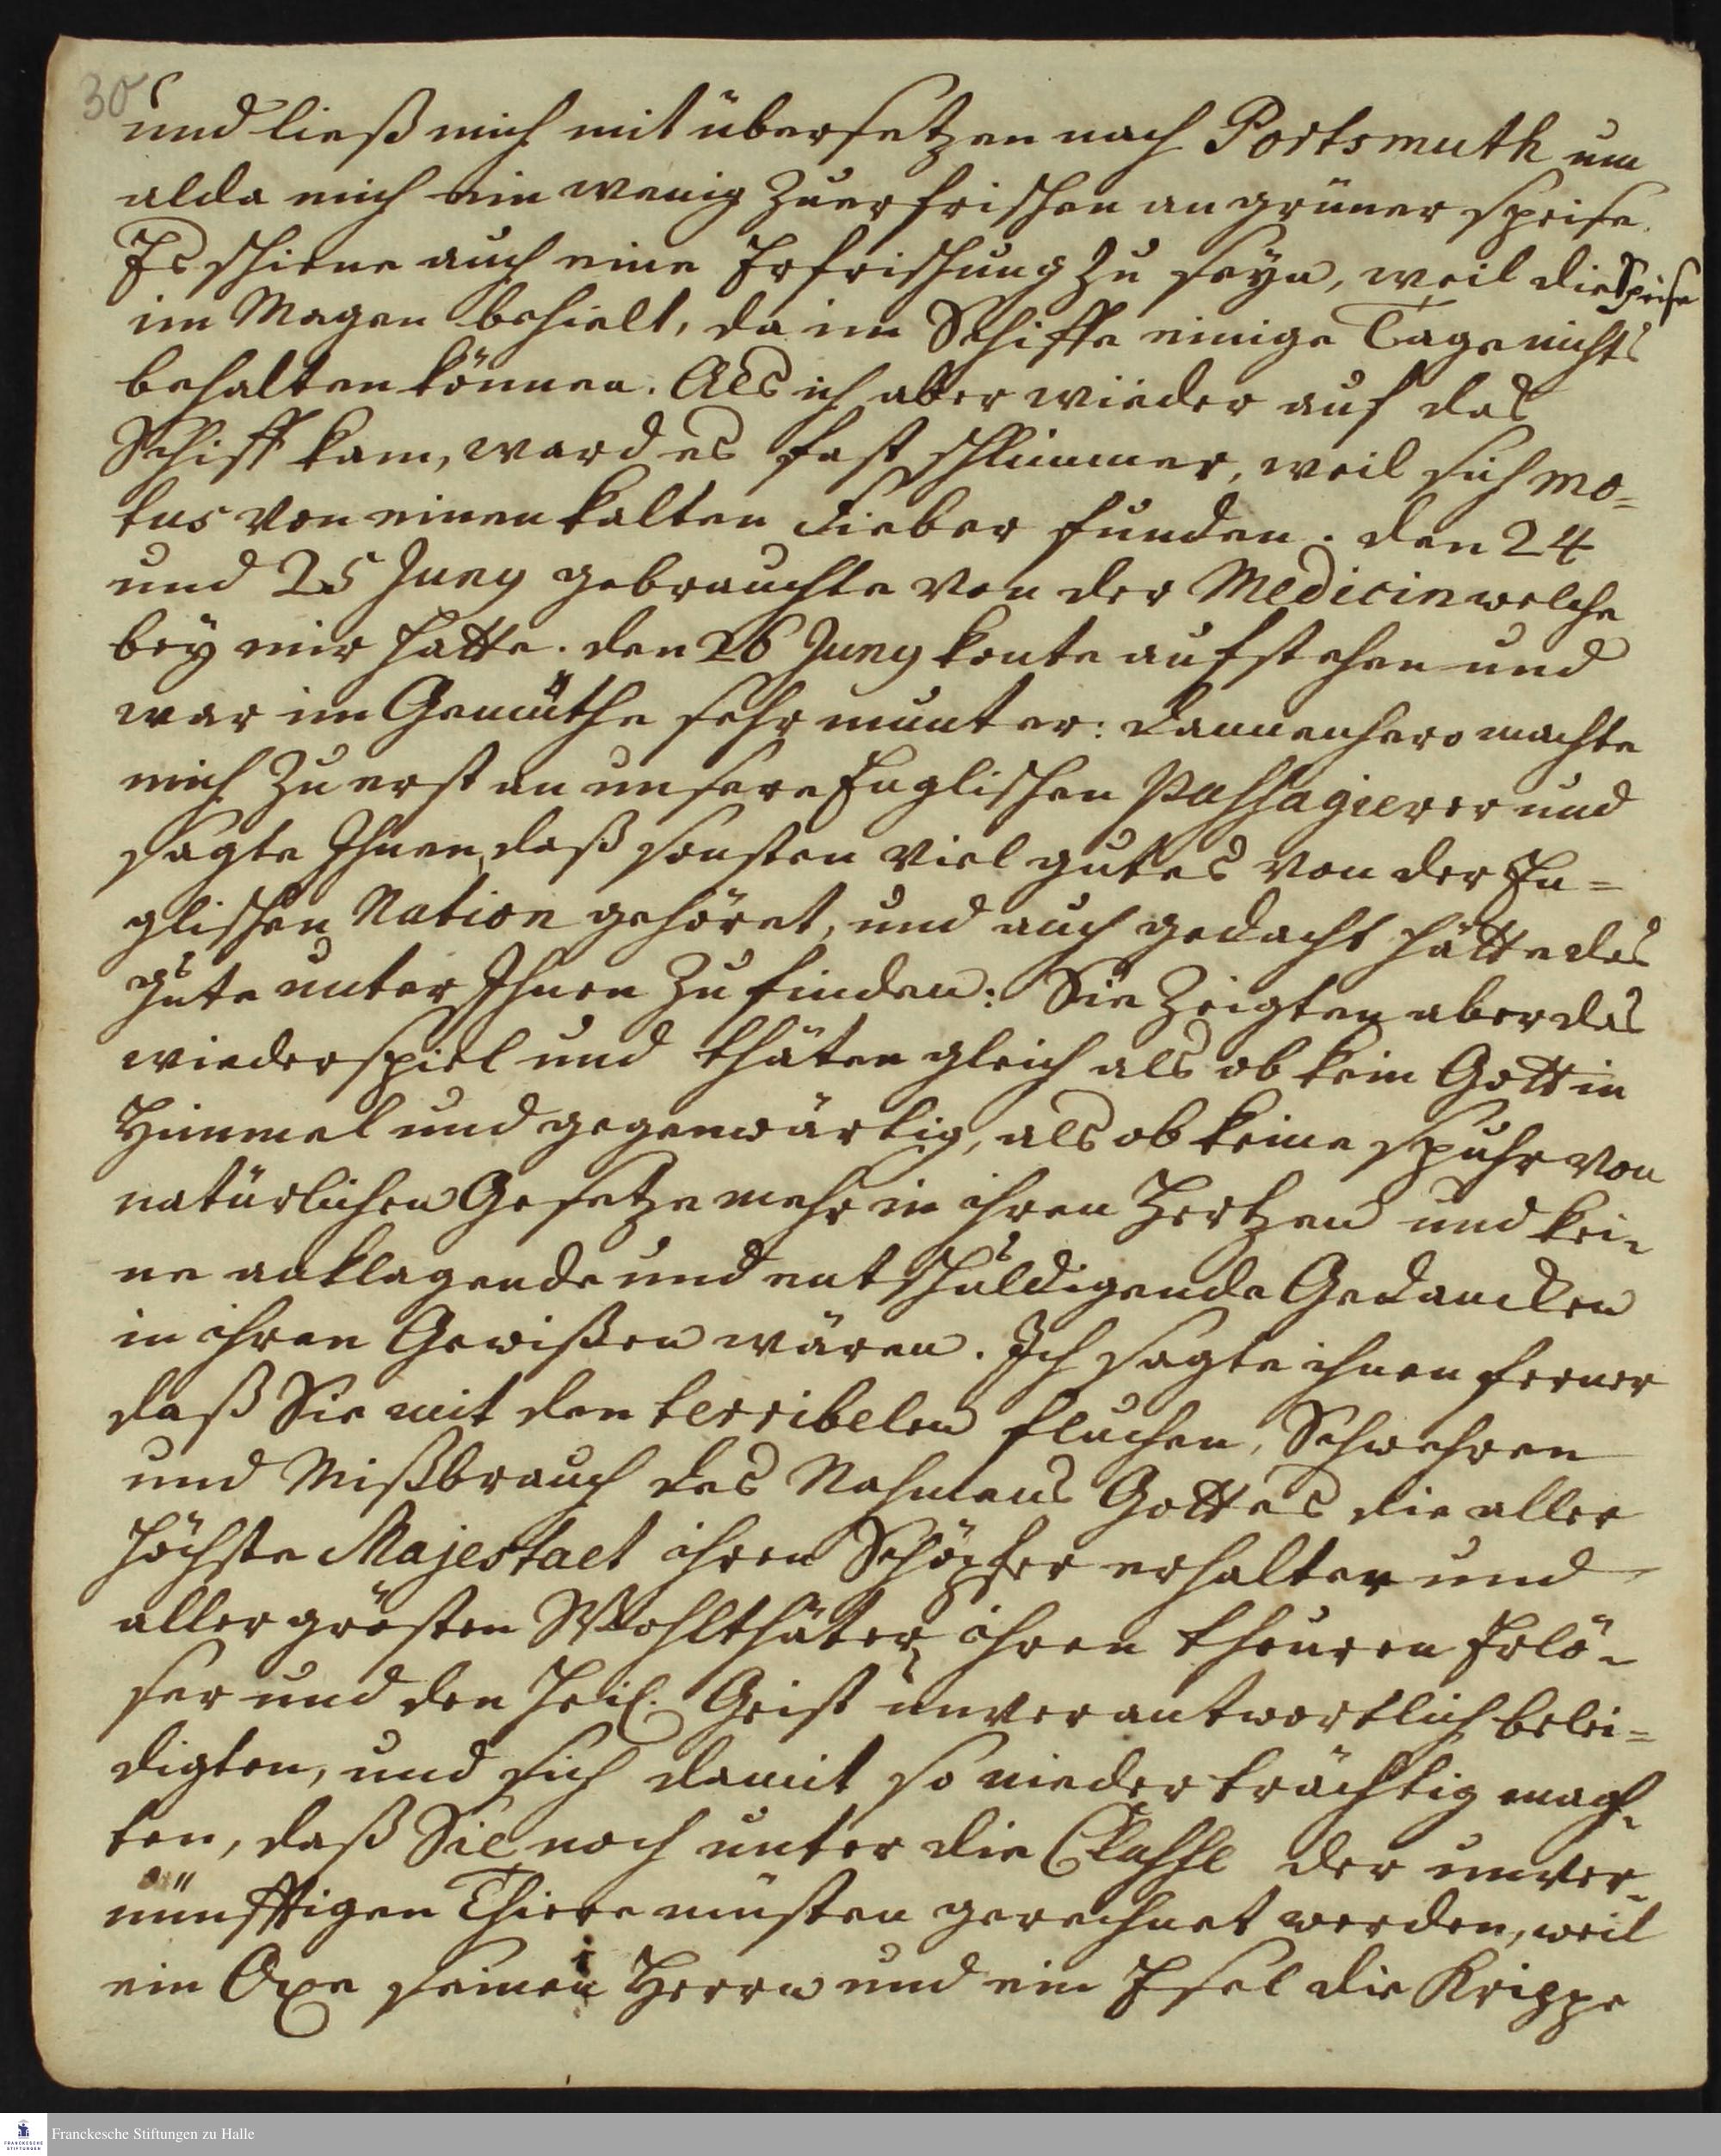 30
und ließ mich mit übersetzen nach Portsmuth um
alda mich ein wenig zuerfrischen an grüner speise.
Es schiene auch eine Erfrischung zu seyn, weil die Speise
im Magen behielt, da im Schiffe einige Tage nichts
behalten können. Als ich aber wieder auf das
Schiff kam, ward es fast schlimmer, weil sich mo=
tus von einen kalten Fieber funden. den 24
und 25 Juny gebrauchte von der Medicin welche
bey mir hatte. den 26 Juny konte aufstehen und
war im Gemüthe sehr munter: dannenhero machte
mich zu erst an unsere Englischen Passagierer und
sagte Ihnen, daß sonsten viel gutes von der En=
glischen Nation gehöret, und auch gedacht hätte das
gute unter Ihnen zu finden: Sie zeigten aber das
wiederspiel und thäten gleich als ob kein Gott in
Himmel und gegenwärtig, als ob keine spuhr von
natürlichen Gesetze mehr in ihren Hertzen und kei=
ne anklagende und entschuldigende Gedancken
in ihren Gewißen wären. Ich sagte ihnen ferner
daß Sie mit den terribelen fluchen, Schwehren
und Mißbrauch des Nahmens Gottes die aller
höchste Majestaet ihren Schöpfer erhalter und
aller grösten Wohlthäter, ihren theuren Erlö=
ser und den Heil. Geist unverantwortlich belei=
digten, und sich damit so niederträchtig mach=
ten, daß Sie noch unter die Classe der unver=
nünfftigen Thiere müsten gerechnet werden, weil
ein Oxe seinen Herrn und ein Esel die Krippe
Franckesche Stiftungen zu Halle